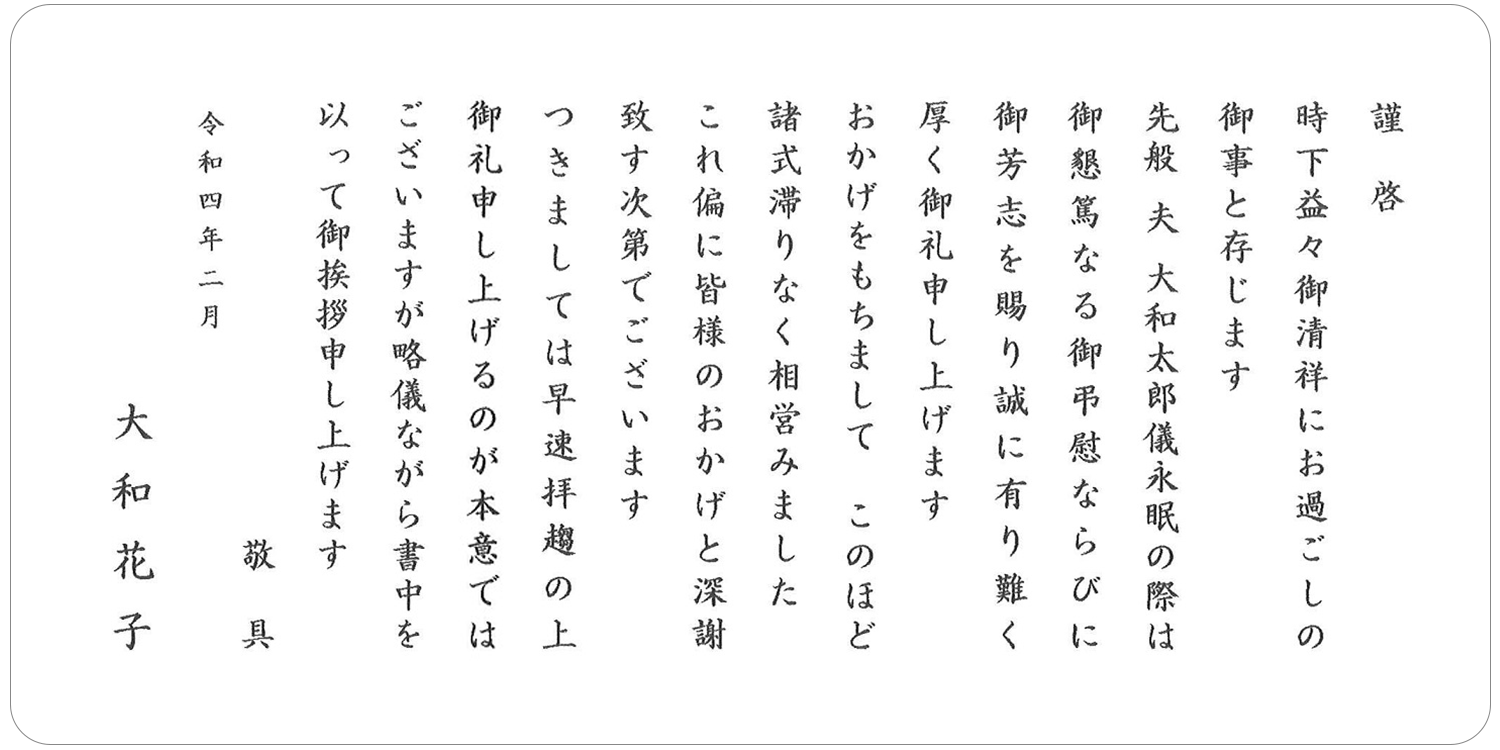 謹 啓
時下益々御清祥にお過ごしの
御事と存じます
先般 夫 大和太郎儀永眠の際は
御懇篤なる御弔慰ならびに
御芳志を賜り誠に有り難く
厚く御礼申し上げます
おかげをもちまして このほど
諸式滞りなく相営みました
これ偏に皆様のおかげと深謝
致す次第でございます
つきましては早速拝趨の上
御礼申し上げるのが本意では
ございますが略儀ながら書中を
以って御挨拶申し上げます
敬 具
令和四年二月
大和花子